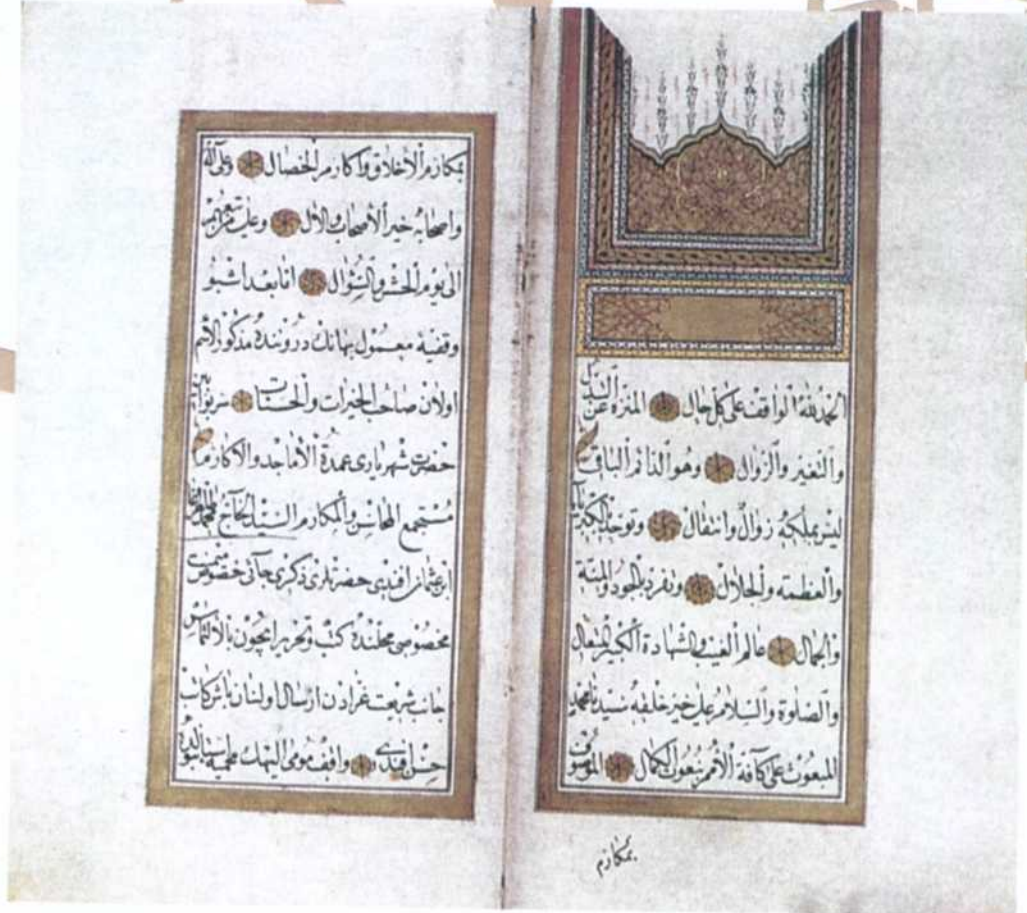 الحمد لله الواقف على كل حال المنزه عن التبدل
والتغير والزوال وهو الدائم الباقى
ليس بملكه زوال وانتقال وتوحد بالكبرياء
والعظمة والجلال وتفرد بالجود والمنة
والجمال عالم الغيب والشهادة الكبير المتعال
والصلوة والسلام على خير خلقه سيدنا محمد
المبعوث على كافة الامم بنعوت الكمال الموصوف
بمكارم
بمكارم الاخلاق واكارم الخصال وعلى آله
واصحابه خير الاصحاب والآل وعلى من تبعهم
الى يوم الحشر والسؤال اما بعد اشبو
وقفيهٔ معمول بهانك دروننده مذكور الاسم
اولان صاحب الخيرات والحسنات سربوابين
حضرت شهريارى عمدة الاماجد والاكارم
مستجمع المحاسن والمكارم السيد الحاج محمد
ابن عثمان افندى حضرتلرى ذكرى جائى خصوص
مخصوصى محلنده كتب وتحرير ايچون بالالتماس
جانب شريعت غرادن ارسال اولنان باش كاتب
حسن افندى واقف مومى اليهك محميهٔ